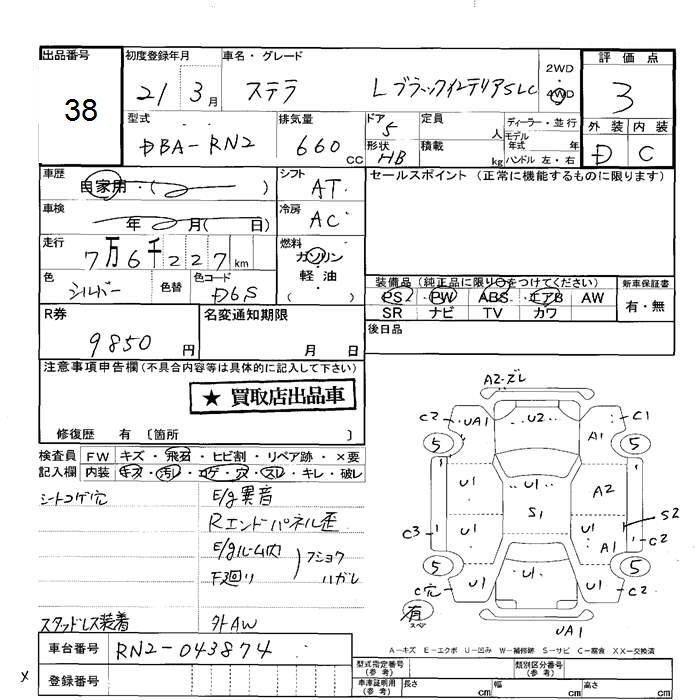 出品番号
38
初度登録年月
21 3月
車名・グレード
ステラ LブラックインテリアSLC
2WD
4WD
評価点
3
外装 内装
D C
型式
DBA-RN2
排気量
660 cc
ドア 5
形状 HB
定員 人
積載 kg
ディーラー・並行
モデル年式 年
ハンドル 左・右
車歴
自家用・( )
シフト
AT
車検
年 月( 日)
冷房
AC
走行
7万6千227km
燃料
ガソリン
軽油
( )
色
シルバー
色替
色コード
D6S
R券
9850円
名変通知期限
月 日
セールスポイント (正常に機能するものに限ります)
装備品 (純正品に限り○をつけてください)
PS PW ABS エアB AW
SR ナビ TV カワ
新車保証書
有・無
後日品
注意事項申告欄(不具合内容等は具体的に記入して下さい)
★ 買取店出品車
修復歴 有 〔箇所 〕
検査員記入欄
FW キズ・飛石・ヒビ割・リペア跡・×要
内装 キズ・汚レ・コゲ・穴・スレ・キレ・破レ
シートコゲ穴
E/g異音
Rエンドパネル歪
E/gルーム内
F廻り
フショク
ハガレ
スタッドレス装着
外AW
車台番号
RN2-043874
登録番号
x
A2・ズレ
C2 UA1 U2 A1 C1
5 5
U1 U1 A2
S1
U1 A1 S2
C3 C2
5 5
C穴 U1 U1 U1 C2
有
スペア
UA1
A-キズ E-エクボ U-凹み W-補修跡 S-サビ C-腐食 XX-交換済
型式指定番号
(参考)
類別区分番号
(参考)
車庫証明用
(参考)
長さ cm
幅 cm
高さ cm